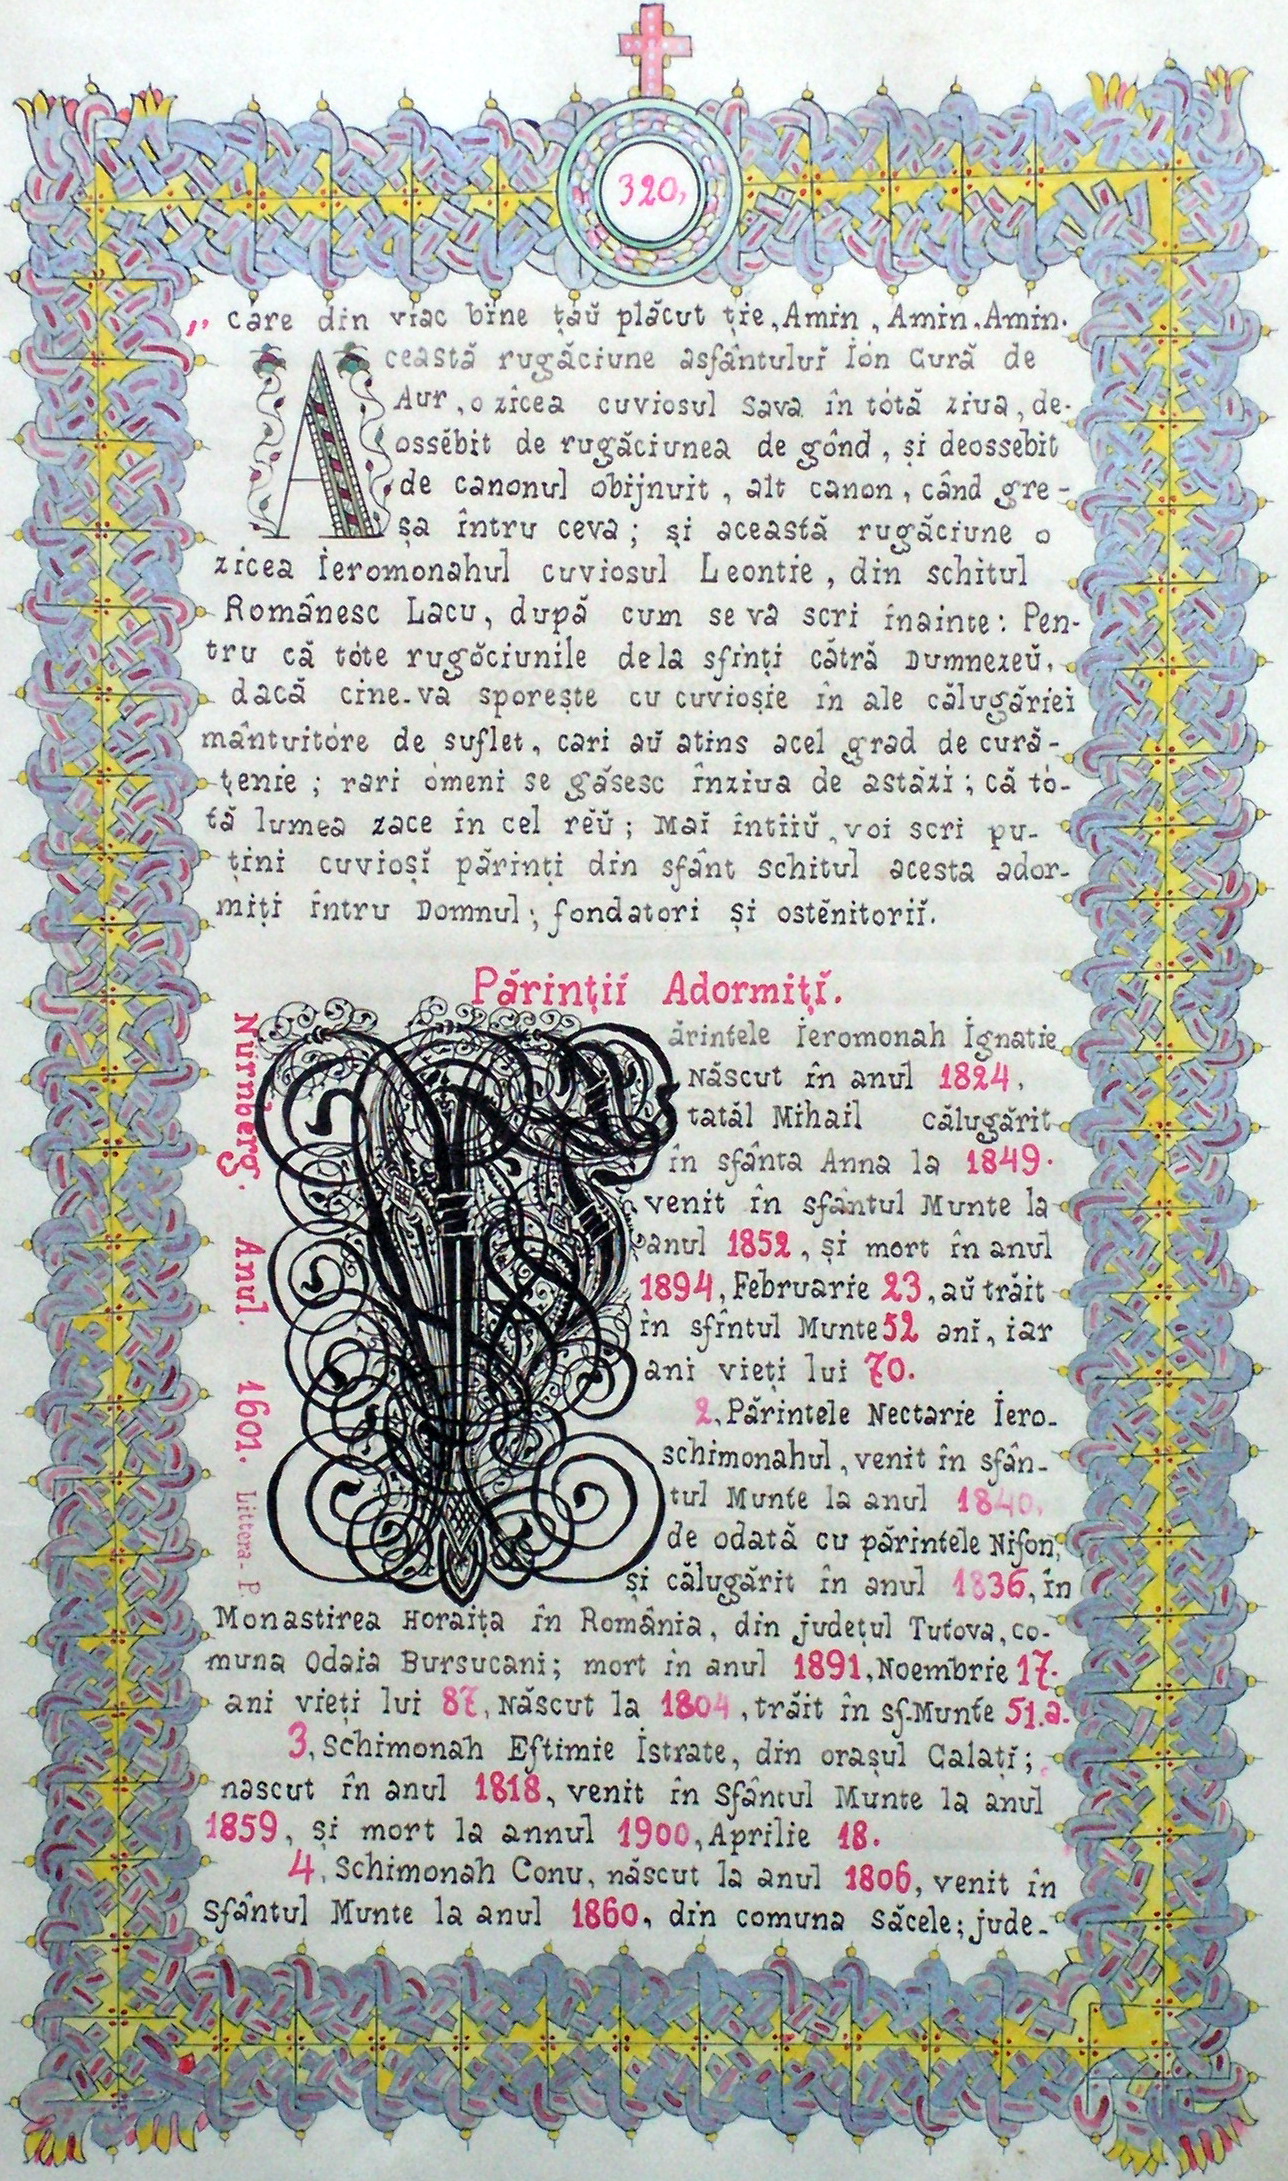 320,
„ care din viac bine țaŭ plăcut ție, Amin, Amin, Amin.
Această rugăciune asfântuluĭ Ión Gură de
Aur, o zicea cuviosul Sava în tótă ziua, de-
ossĕbit de rugăciunea de gônd, și deossebit
de canonul obijnuit, alt canon, când gre-
șa întru ceva; și această rugăciune o
zicea Ieromonahul cuviosul Leontie, din schitul
Românesc Lacu, după cum se va scri înainte: Pen-
tru că tóte rugăciunile dela sfinți cătră Dumnezeŭ,
dacă cine-va sporește cu cuvioșie în ale călugăriei
mântuitóre de suflet, cari aŭ atins acel grad de cură-
țenie; rari ómeni se găsesc înziua de astăzi; că tó-
tă lumea zace în cel rĕŭ; Maĭ întiiŭ, voi scri pu-
țini cuvioșĭ părinți din sfânt schitul acesta ador-
miți întru Domnul; fondatori și ostĕnitoriĭ.
Părințiĭ Adormițĭ.
Părintele Ieromonah Ignatie
Născut în anul 1824,
tatăl Mihail călugărit
în sfânta Anna la 1849.
venit în sfântul Munte la
anul 1852, și mort în anul
1894, Februarie 23, aŭ trăit
în sfîntul Munte 52 anĭ, iar
ani vieți lui 70.
2, Părintele Nectarie Iero-
schimonahul, venit în sfân-
tul Munte la anul 1840,
de odată cu părintele Nifon,
și călugărit în anul 1836, în
Monastirea Horaița în România, din județul Tutova, co-
muna Odaia Bursucani; mort în anul 1891, Noembrie 17.
ani vieți lui 87, Născut la 1804, trăit în sf. Munte 51.a.
3, Schimonah Eftimie Istrate, din orașul Galațĭ;
nascut în anul 1818, venit în Sfântul Munte la anul
1859, și mort la annul 1900, Aprilie 18.
4, Schimonah Conu, născut la anul 1806, venit în
Sfântul Munte la anul 1860, din comuna Săcele; jude-
Nürnberg. Anul. 1601. Littera- P.